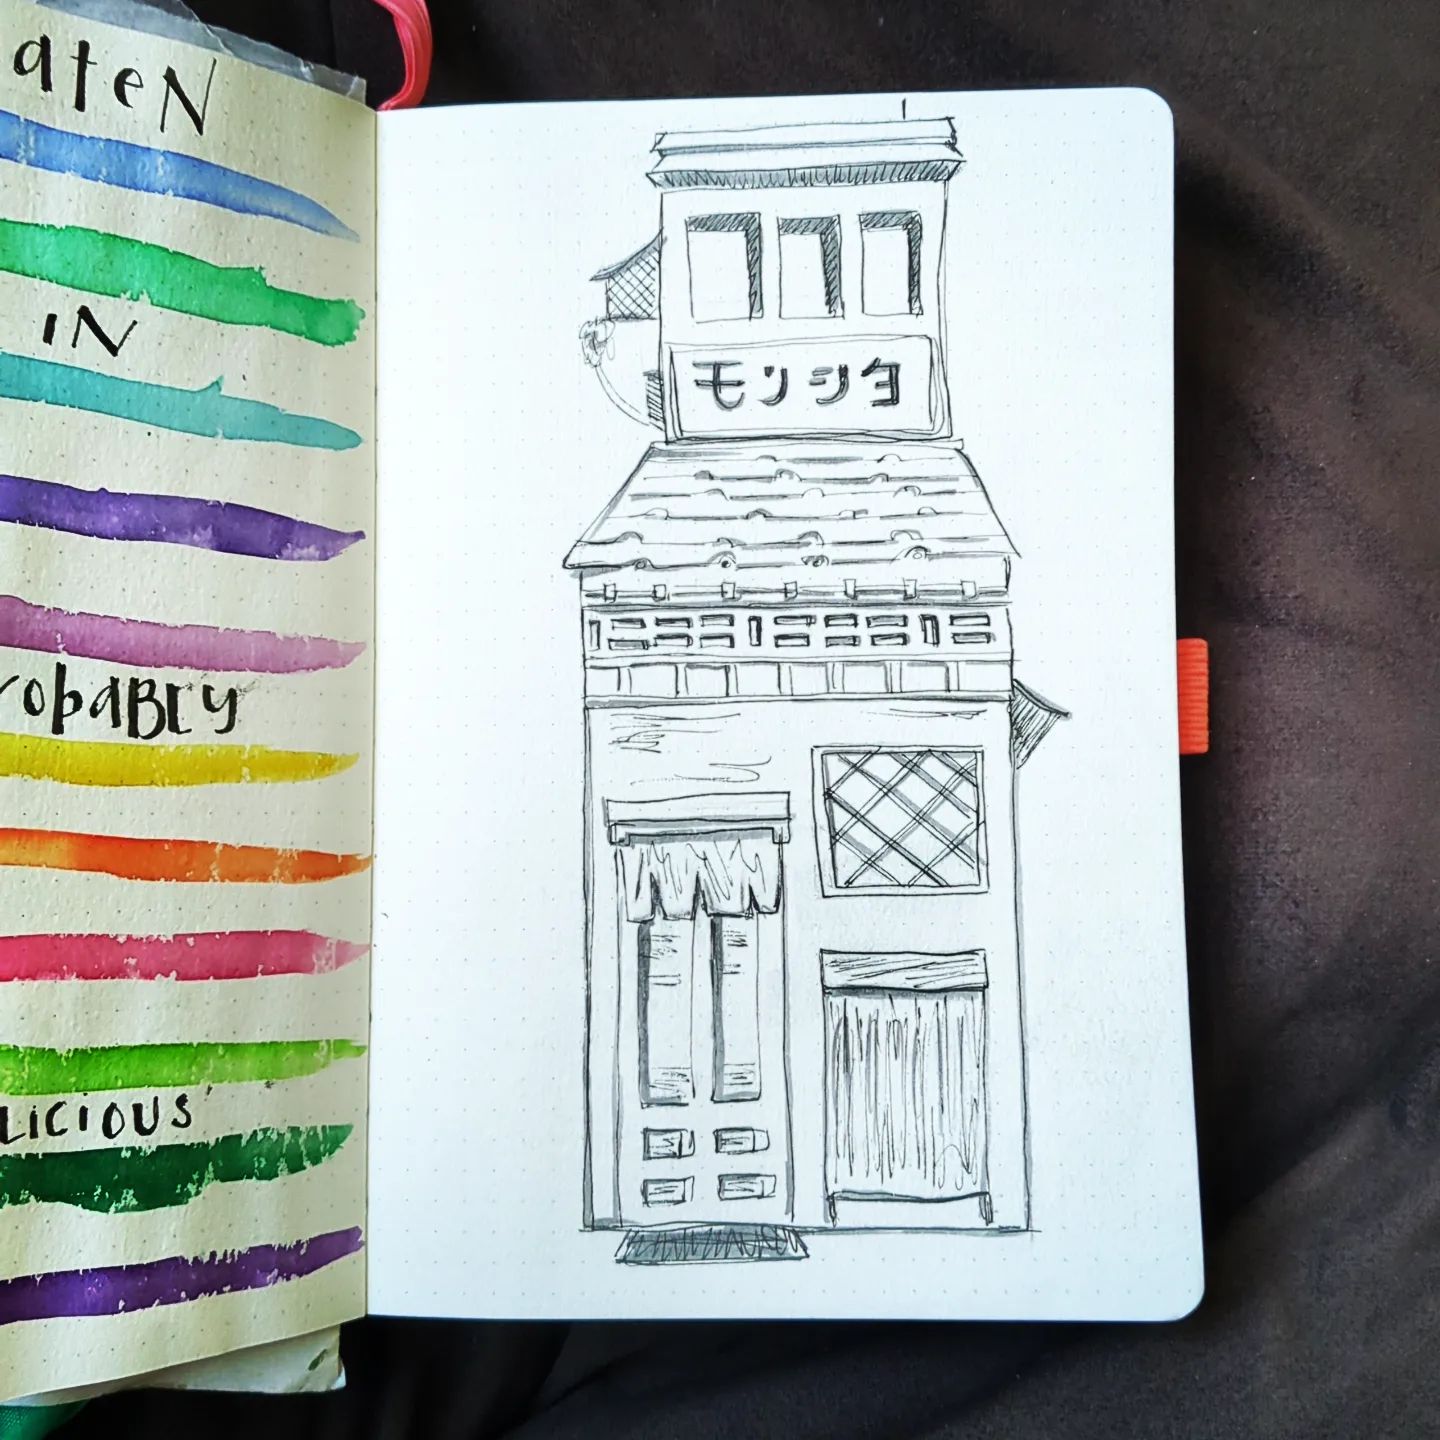 ateN
IN
robaBLy
LICIOUS
モンシヨ